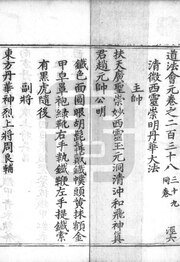 道法會元卷之二百三十八 三十九同卷 逕
清微西靈崇明丹華大法
主帥
扶天廣聖崇妙西靈王元洞清沖和飛神真
君趙元帥公明
鐵色面圓眼胡髭鐵幞頭黃抹額金
甲皂袍綠靴右手執鐵鞭左手提鐵索
有黑虎隨後
副將
東方丹華神烈上將周良輔